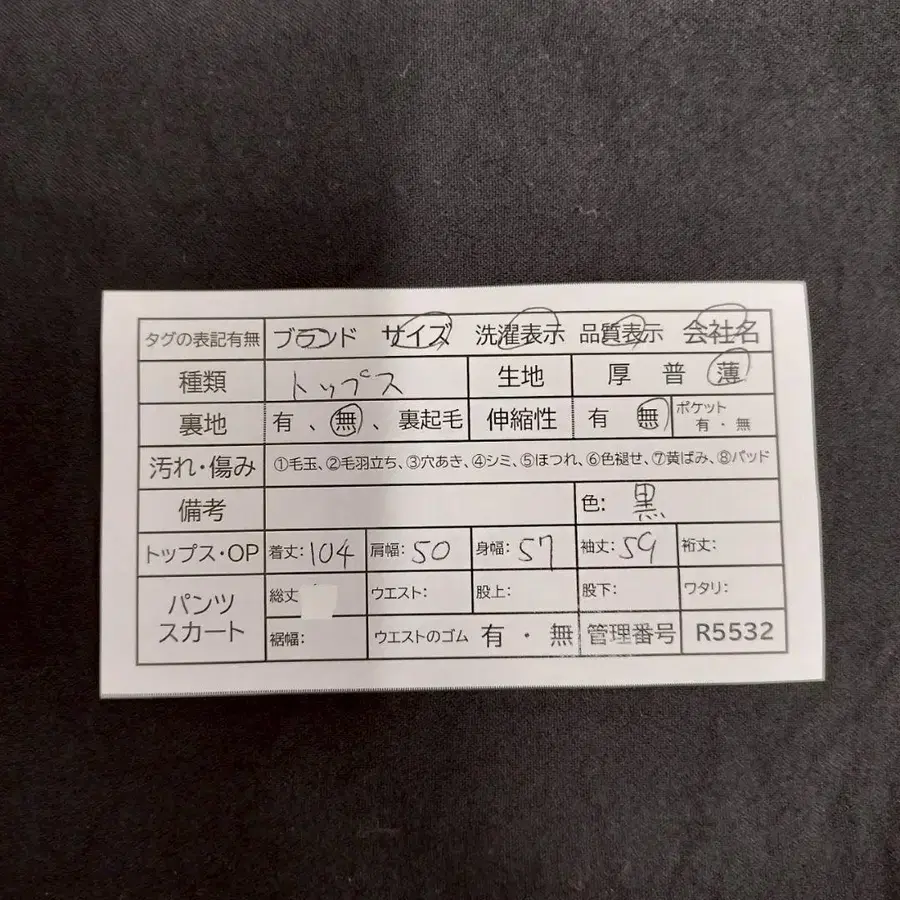 タグの表記有無 ブランド サイズ 洗濯表示 品質表示 会社名
種類 トップス 生地 厚 普 薄
裏地 有 、 無 、 裏起毛 伸縮性 有 無 ポケット 有 ・ 無
汚れ・傷み ①毛玉、②毛羽立ち、③穴あき、④シミ、⑤ほつれ、⑥色褪せ、⑦黄ばみ、⑧パッド
備考 色: 黒
トップス・OP 着丈: 104 肩幅: 50 身幅: 57 袖丈: 59 裄丈:
パンツ スカート 総丈 ウエスト: 股上: 股下: ワタリ:
裾幅: ウエストのゴム 有 ・ 無 管理番号 R5532